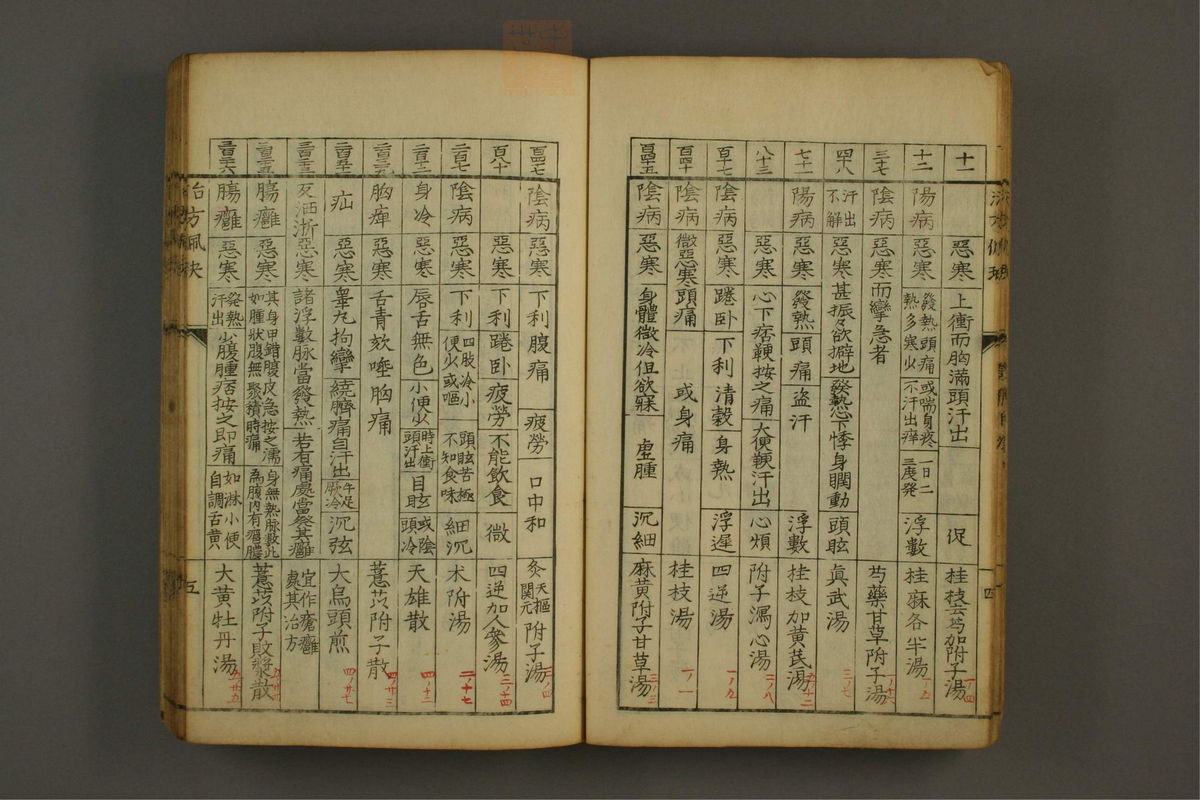 十一 惡寒 上衝而胸滿頭汗出 促 桂枝去芍加附子湯 一ノ四
十二 陽病 惡寒 發熱頭痛 熱多寒少 或喘身疼 不汗出痒 一日二三度発 浮數 桂麻各半湯
三十七 陰病 惡寒而攣急者 芍藥甘草附子湯
四十八 汗出不解 惡寒 甚振々欲擗地 發熱 心下悸身瞤動 頭眩 眞武湯 三ノ七
七十一 陽病 惡寒 發熱頭痛 盗汗 浮數 桂枝加黃芪湯
八十三 惡寒 心下痞鞕按之痛 大便鞕汗出 心煩 附子瀉心湯 二ノ八
百十七 陰病 惡寒 踡卧 下利清穀 身熱 浮遲 四逆湯 一ノ九
百四十 陰病 微惡寒 頭痛 或身痛 桂枝湯 一ノ一
百四十五 陰病 惡寒 身體微冷但欲寐 虛腫 沉細 麻黃附子甘草湯 三ノ三
四
百四七 陰病 惡寒 下利腹痛 疲勞 口中和 灸天樞関元 附子湯
百八十 惡寒 下利踡卧 疲勞 不能飲食 微 四逆加人參湯 三ノ十四
二百七 陰病 惡寒 下利 四肢冷小便少或嘔 頭眩苦極不知食味 細沉 朮附湯 二ノ十七
身冷 惡寒 唇舌無色 小便少 時上衝頭汗出 目眩 或陰頭冷 天雄散 四ノ十二
胸痺 惡寒 舌青欬唾胸痛 薏苡附子散 四ノ廿三
疝 惡寒 睾丸拘攣 繞臍痛自汗出 手足厥冷 沉弦 大烏頭煎 四ノ廿七
死洒淅惡寒 諸浮數脉當發熱 若有痛處當發其癰 宜作瘡癰處其治方
腸癰 惡寒 其身甲錯腹皮急按之濡如腫狀腹無聚積時痛 身無熱脉數此為腹内有癰膿 薏苡附子敗漿散
腸癰 惡寒 發熱汗出 少腹腫痞按之即痛 如淋小便自調舌黃 大黃牡丹湯
五